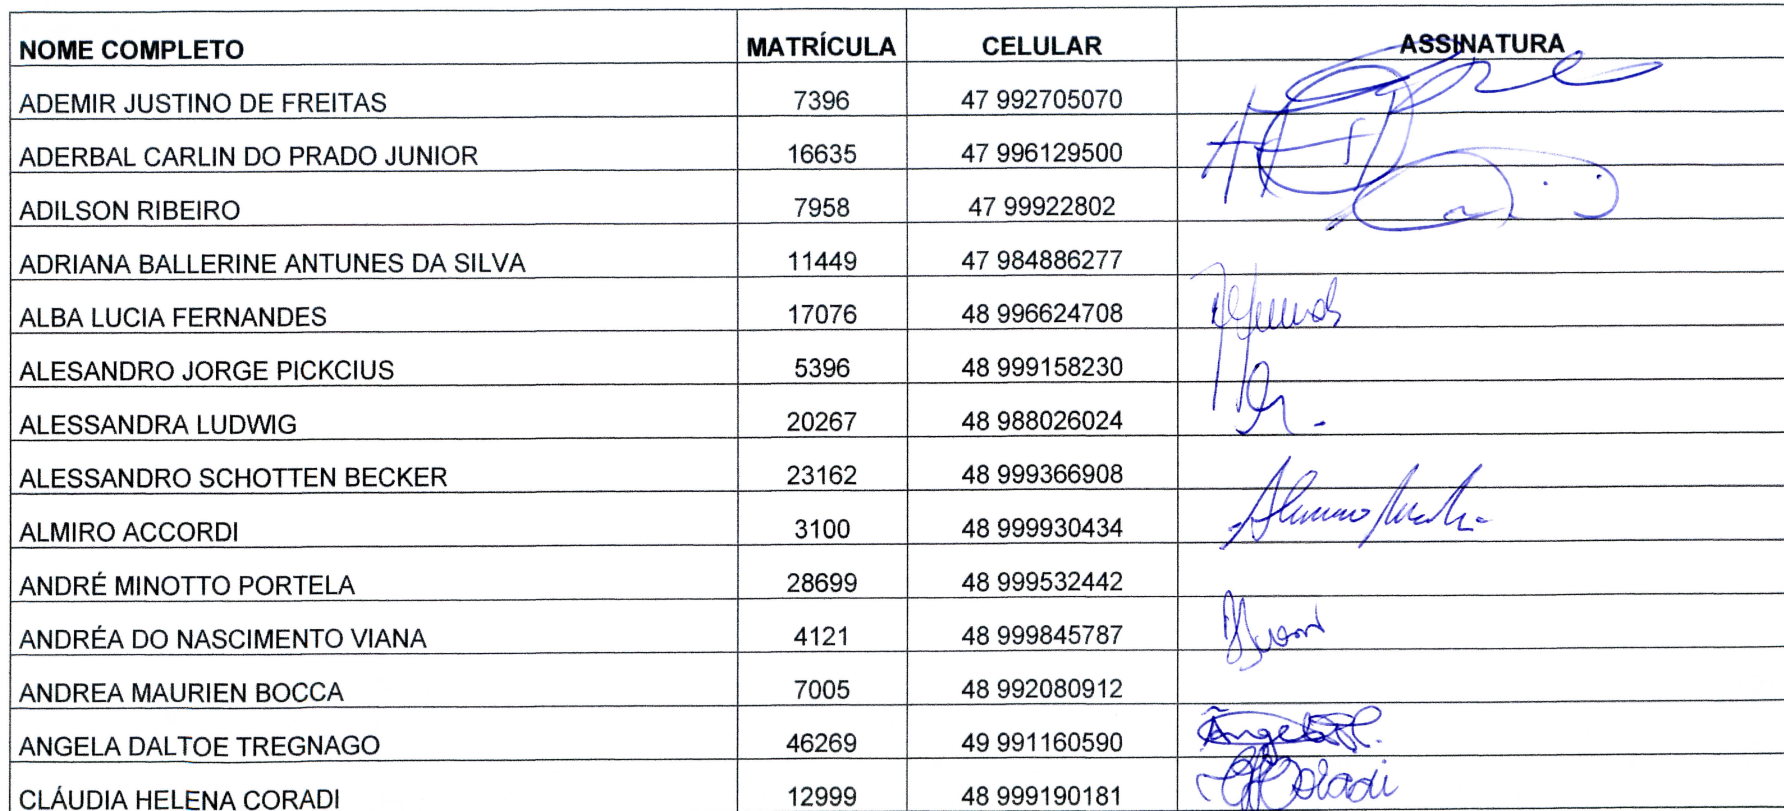 NOME COMPLETO MATRÍCULA CELULAR ASSINATURA
ADEMIR JUSTINO DE FREITAS 7396 47 992705070
ADERBAL CARLIN DO PRADO JUNIOR 16635 47 996129500
ADILSON RIBEIRO 7958 47 99922802
ADRIANA BALLERINE ANTUNES DA SILVA 11449 47 984886277
ALBA LUCIA FERNANDES 17076 48 996624708
ALESANDRO JORGE PICKCIUS 5396 48 999158230
ALESSANDRA LUDWIG 20267 48 988026024
ALESSANDRO SCHOTTEN BECKER 23162 48 999366908
ALMIRO ACCORDI 3100 48 999930434
ANDRÉ MINOTTO PORTELA 28699 48 999532442
ANDRÉA DO NASCIMENTO VIANA 4121 48 999845787
ANDREA MAURIEN BOCCA 7005 48 992080912
ANGELA DALTOE TREGNAGO 46269 49 991160590
CLÁUDIA HELENA CORADI 12999 48 999190181